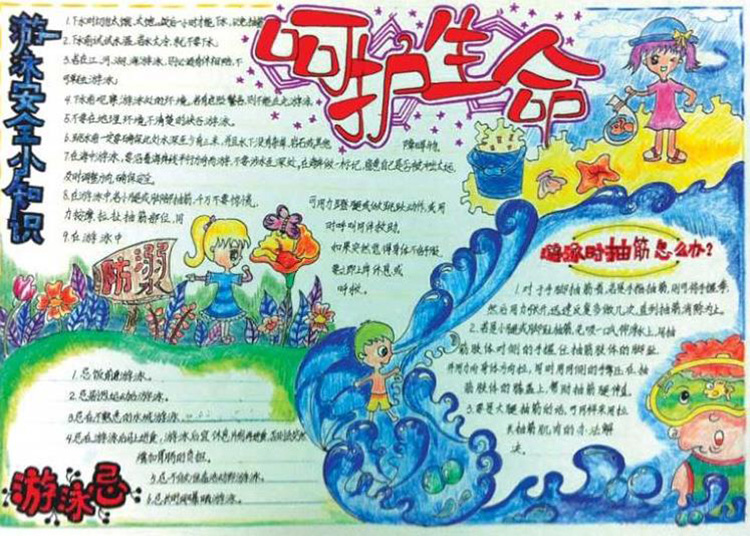 游泳安全小知识
呵护生命
1.下水时切勿太饿、太饱。饭后一小时才能下水,以免抽筋
2.下水前试试水温,若水太冷,就不要下水
3.若在江、河、湖、海游泳,则必须有伴相陪,不
可单独游泳。
4.下水前观察游泳处的环境,若有危险警告,则不能在此游泳
5.不要在地理环境不清楚的峡谷游泳。
7.在海中游泳,要沿着海岸线平行方向而游
及时调整方向,确保安全。
8.在游泳中若小腿或脚部抽筋,千万不要惊慌,
力按摩拉扯抽筋部位,同
时呼叫同伴救助。
9.在游泳中
如果突然觉得身体不舒服
要立即上岸休息或
呼救。
防溺
游泳时抽筋怎么办?
1.对于手脚抽筋者,若是手指抽筋,则可将手握拳,
然后用力张开,迅速反复多做几次,直到抽筋消除为止。
2.若是小腿或脚趾抽筋,先吸一口气仰浮水上,用抽
筋肢体对侧的手握住抽筋肢体的脚趾,
并用力向身体方向拉,同时用同侧的手掌压在抽
筋肢体的膝盖上,帮助抽筋腿伸直。
3.要是大腿抽筋的话,可同样采用拉
长抽筋肌肉的办法解
决。
1.忌饭前后游泳。
2.忌剧烈运动后游泳
3.忌在不熟悉的水域游泳
增加胃肠的负担。
6.忌长时间曝晒游泳。
游泳忌